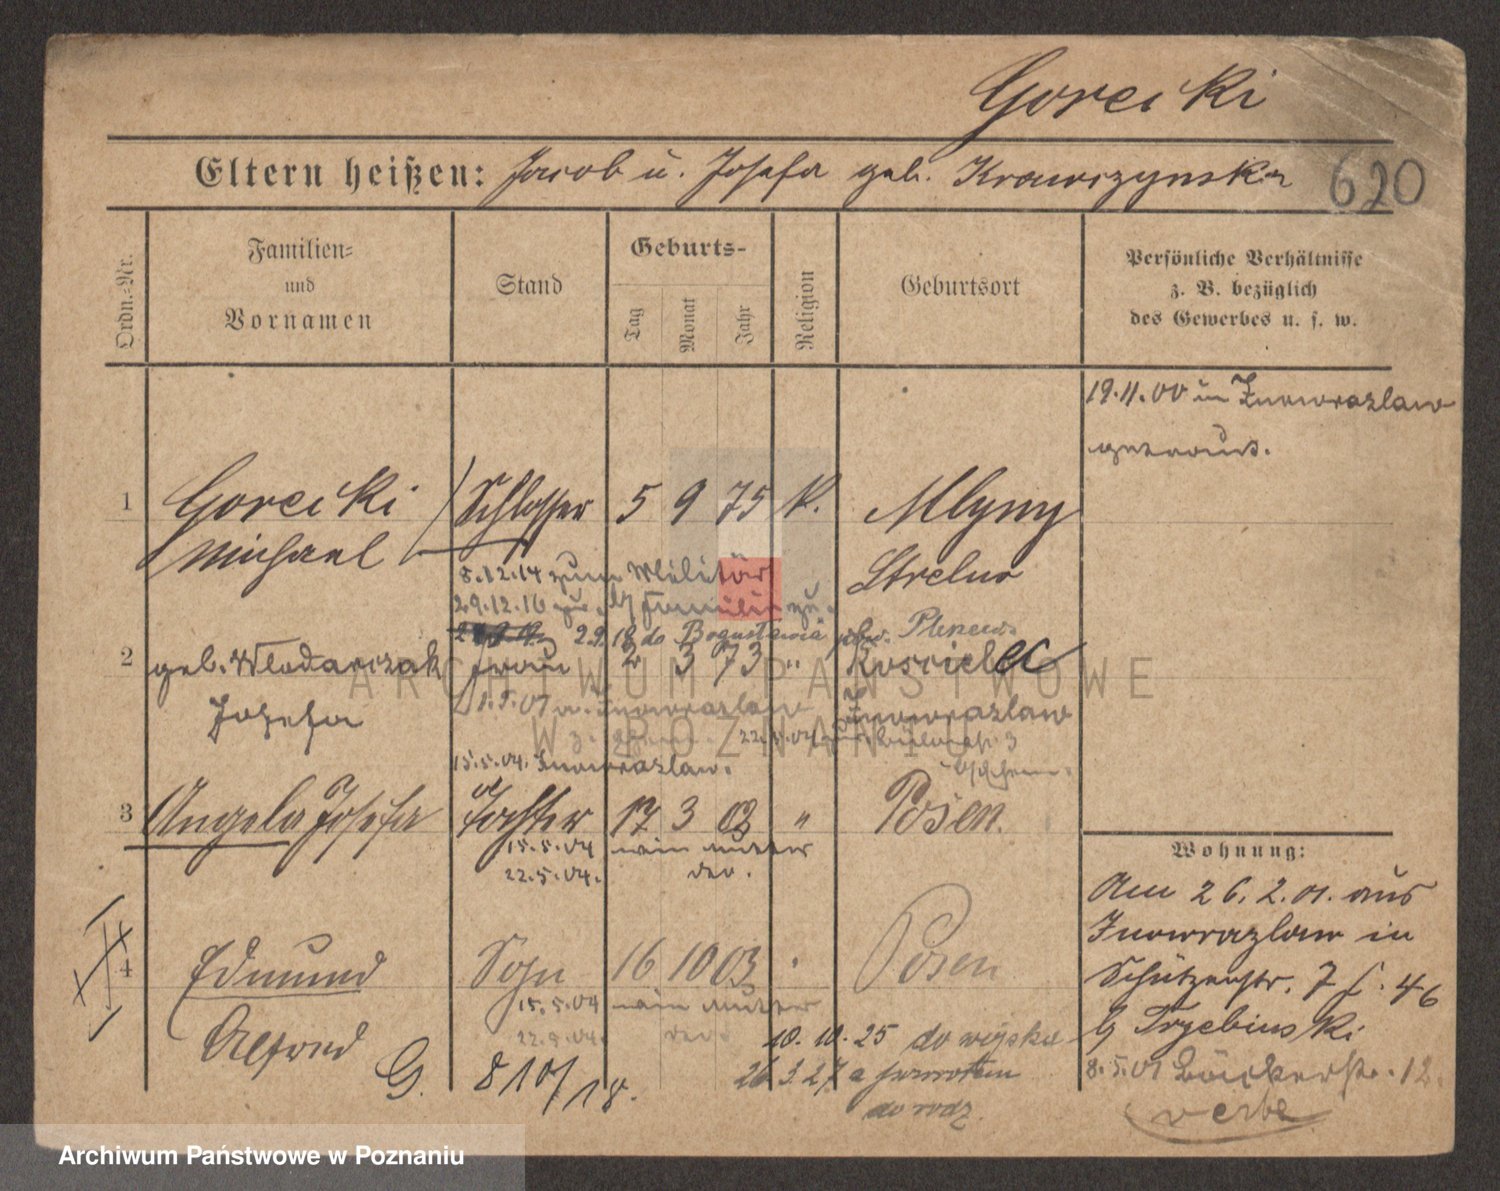 Gorecki
Eltern heißen: Jacob u. Josefa geb. Krawczynska 620
Ordn.-Nr.
Familien-
und
Vornamen
Stand
Geburts-
Tag
Monat
Jahr
Religion
Geburtsort
Persönliche Verhältnisse
z. B. bezüglich
des Gewerbes u. s. w.
19.11.00 in Inowrazlaw
getraut.
1 Gorecki Schlosser 5 9 75 K. Mlyny
Michael Strelno
8.12.14 zum Militär
29.12.16 zur. Familie zu.
29. 18 do Bogusławia pow. Pleszew.
2 geb. Wlodarczak Frau 2 3 73 " Koscielec
Josefa Inowrazlaw
1.5.01 Inowrazlaw
22.5.04
15.5.04. Inowrazlaw.
3 Angela Josefa Tochter 17 3 02 " Posen.
15.5.04 wie Mutter
22.5.04. do.
4 Edmund Sohn 16 10 03 Posen
15.5.04 wie Mutter
22.5.04. do.
Alfred
G. 8/10/18.
10. 10. 25 do wojska
26 3. 27 z powrotem
do rodz.
Wohnung:
Am 26.2.01. aus
Inowrazlaw in
Schützenstr. 7
b/ Trzebinski
8.5.01 Bäckerstr. 12
verte
ARCHIWUM PAŃSTWOWE
W POZNANIU
Archiwum Państwowe w Poznaniu